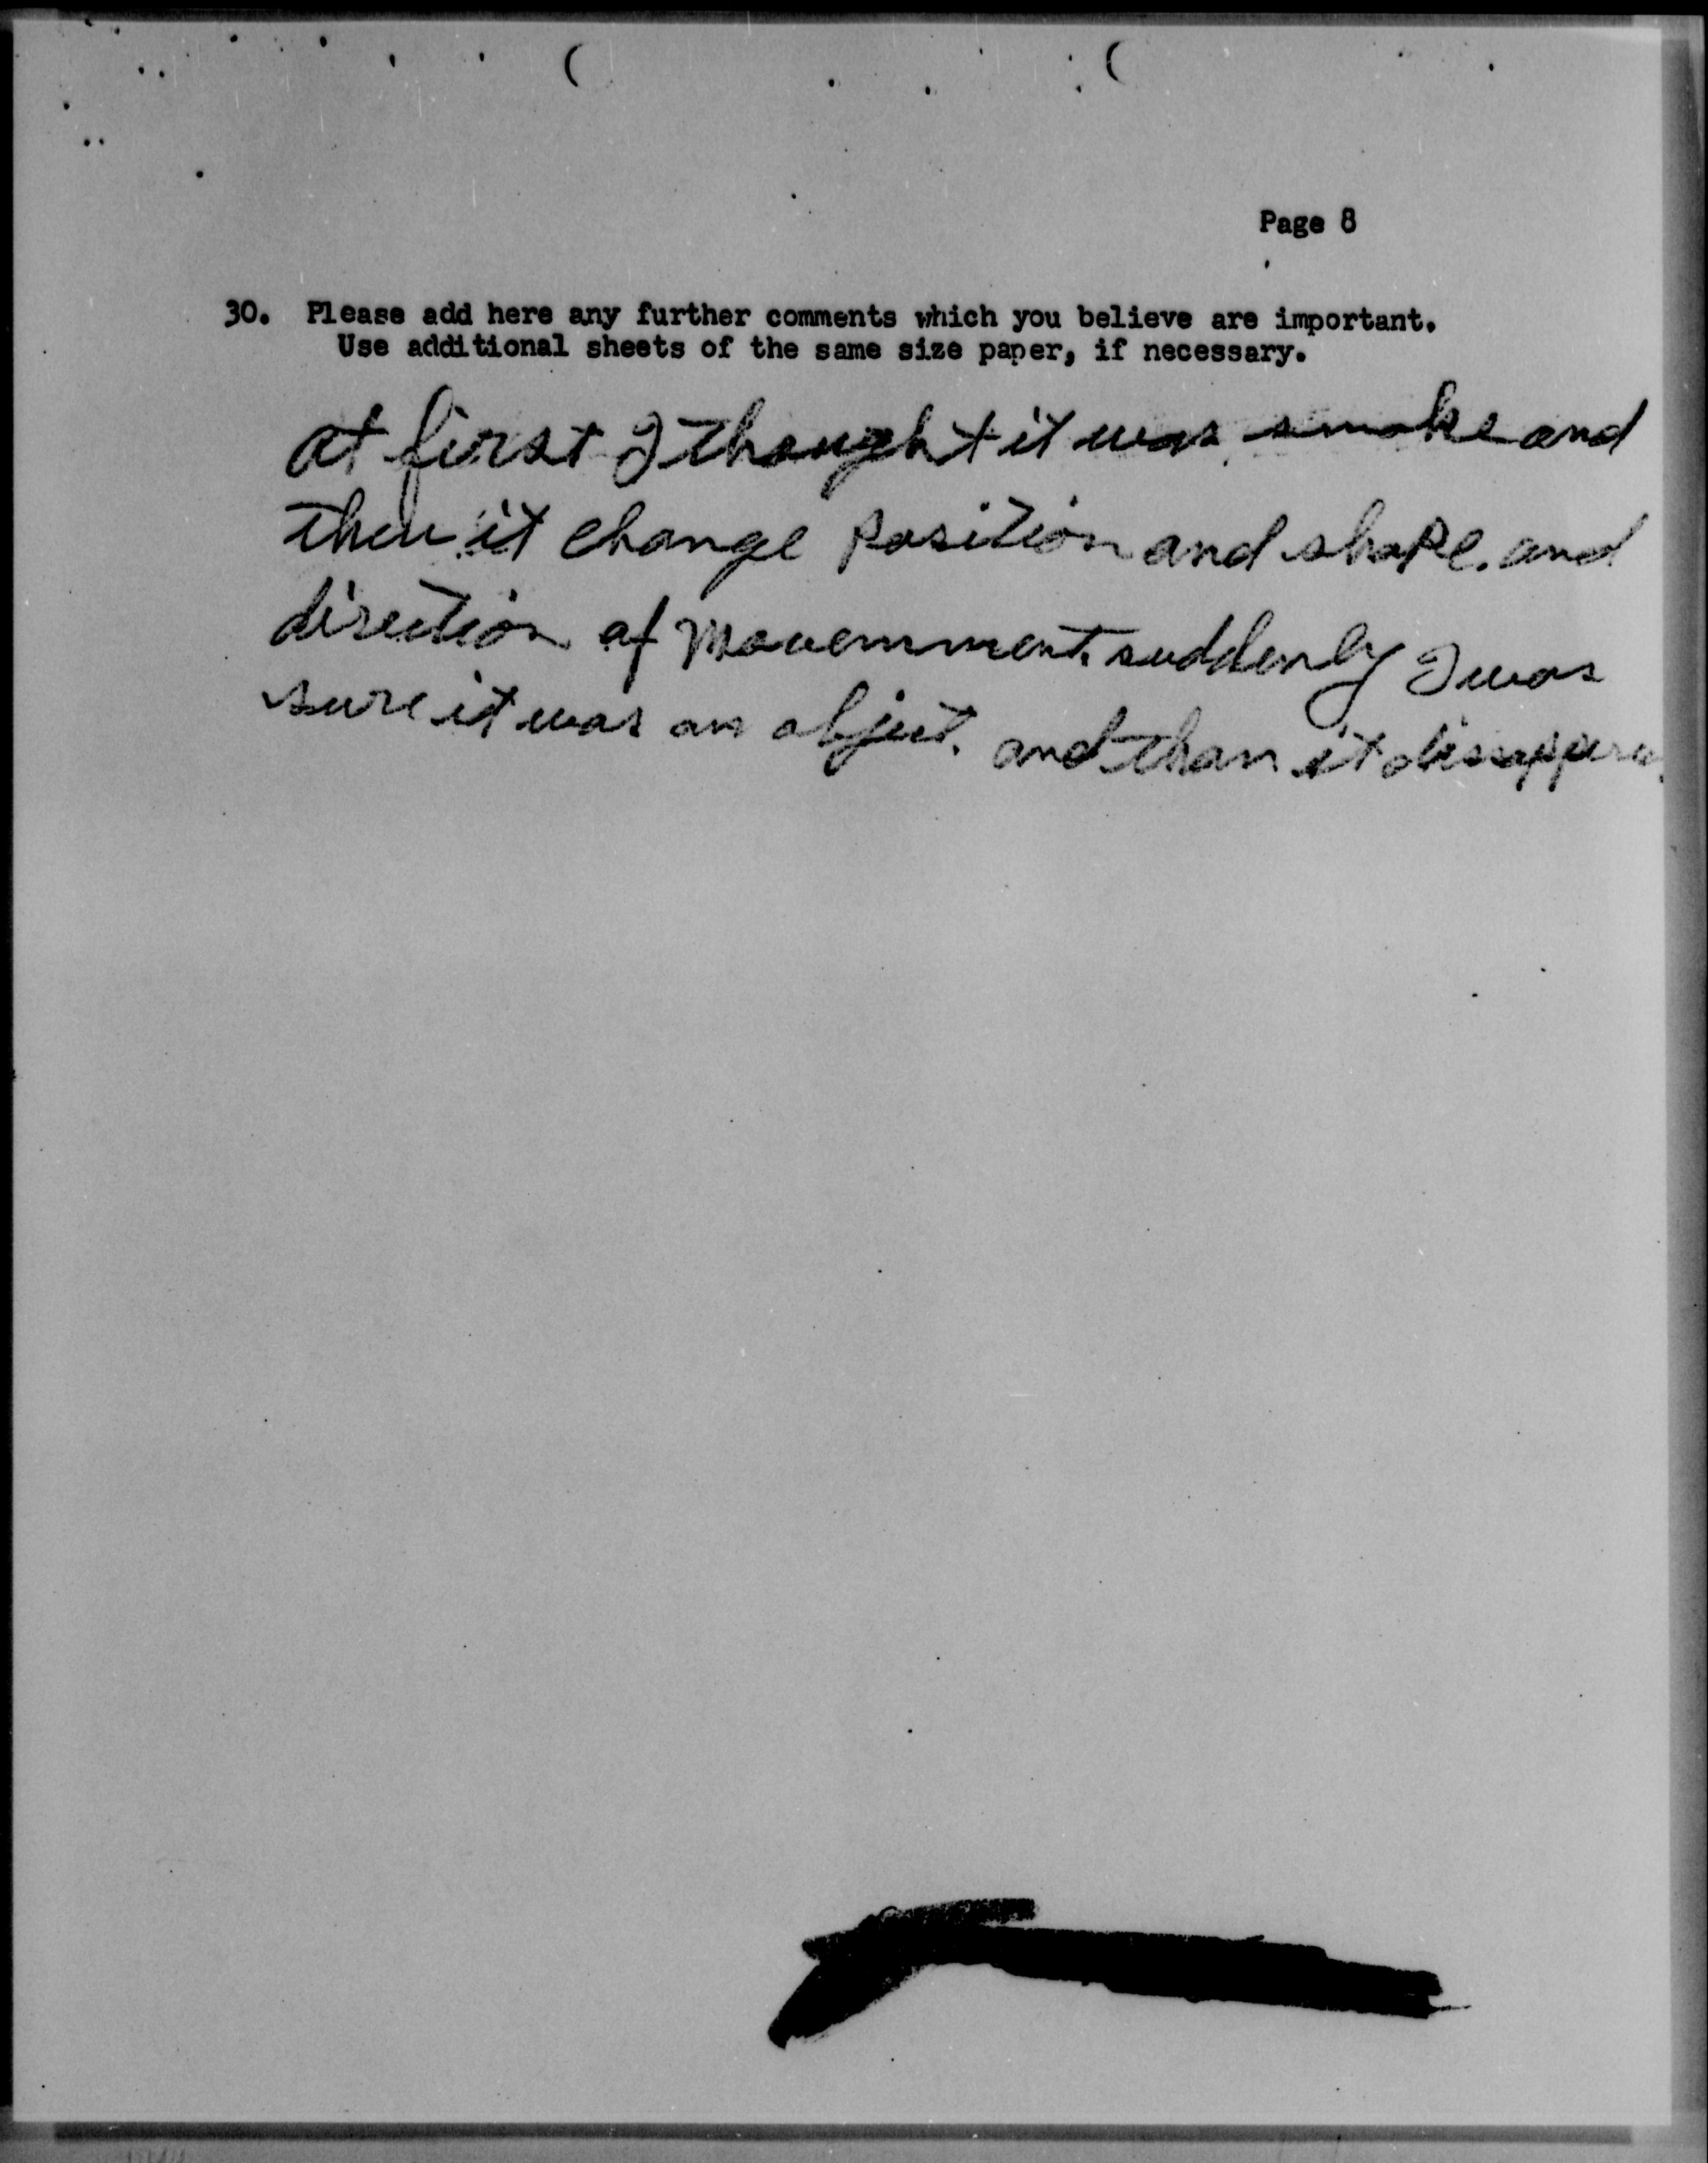 Page 8
30. Please add here any further comments which you believe are important.
Use additional sheets of the same size paper, if necessary.
at first I thought it was smoke and
then it change position and shape. and
direction of Movemment. suddenly I was
sure it was an object. and than it